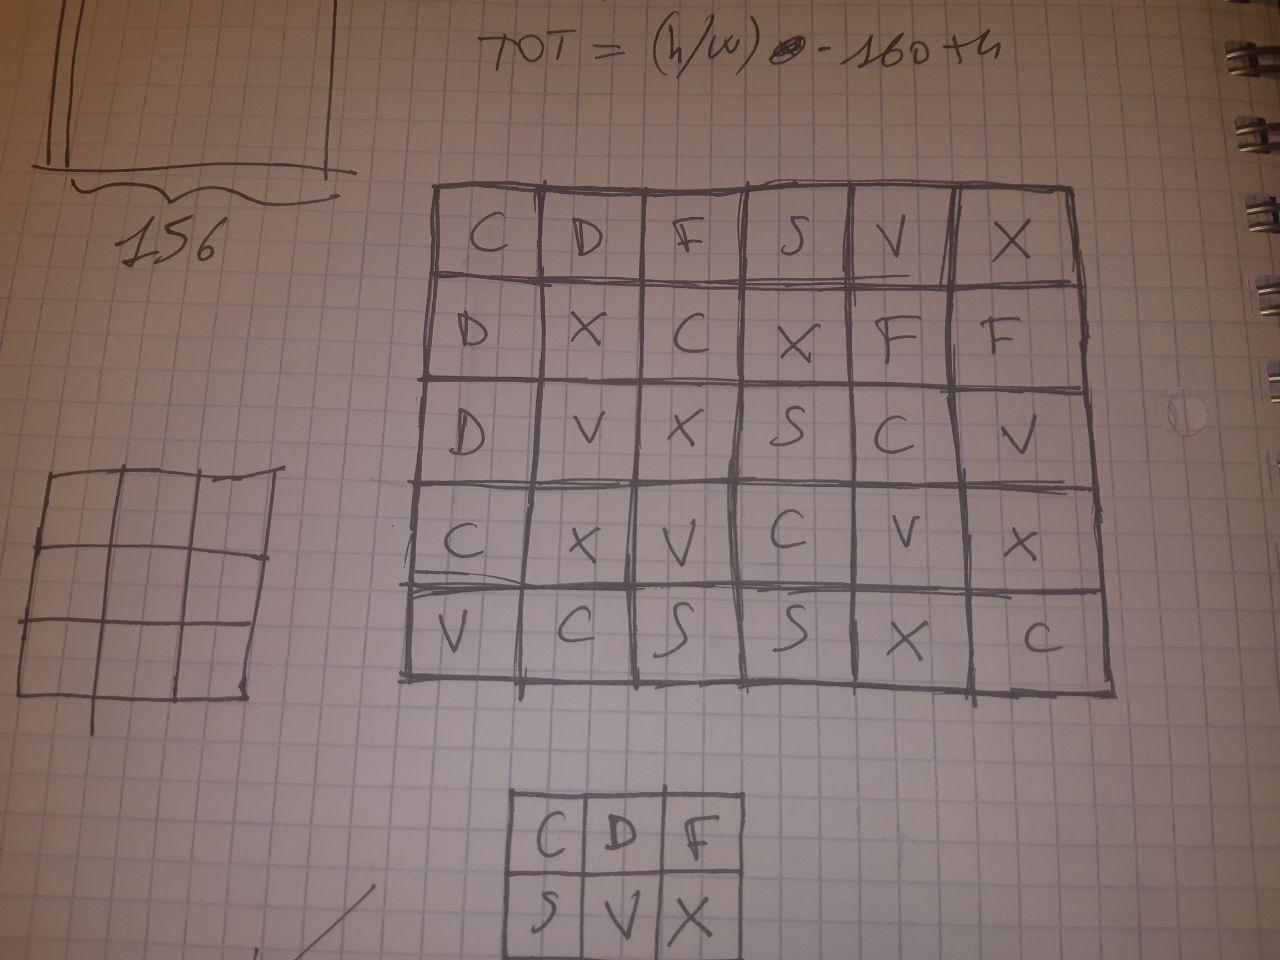 TOT = (h/w) - 160 + h
156
C D F S V X
D X C X F F
D V X S C V
C X V C V X
V C S S X C
C D F
S V X